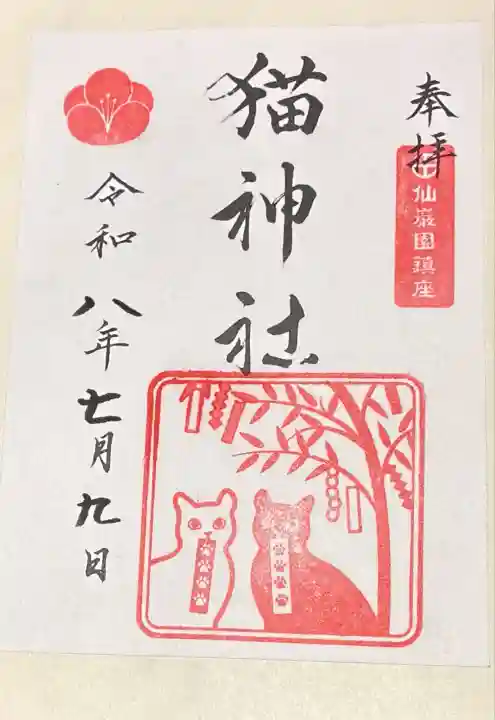 奉拝
仙巌園鎮座
猫神社
令和八年七月九日